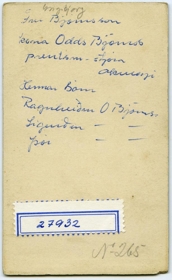 Ingibjörg
Björnsson
kona Odds Björns
prentsm-stjóra
Akureyri
Hennar börn
Ragnheiður O Björns
Sigurður — —
Þór — —
27932
No 265